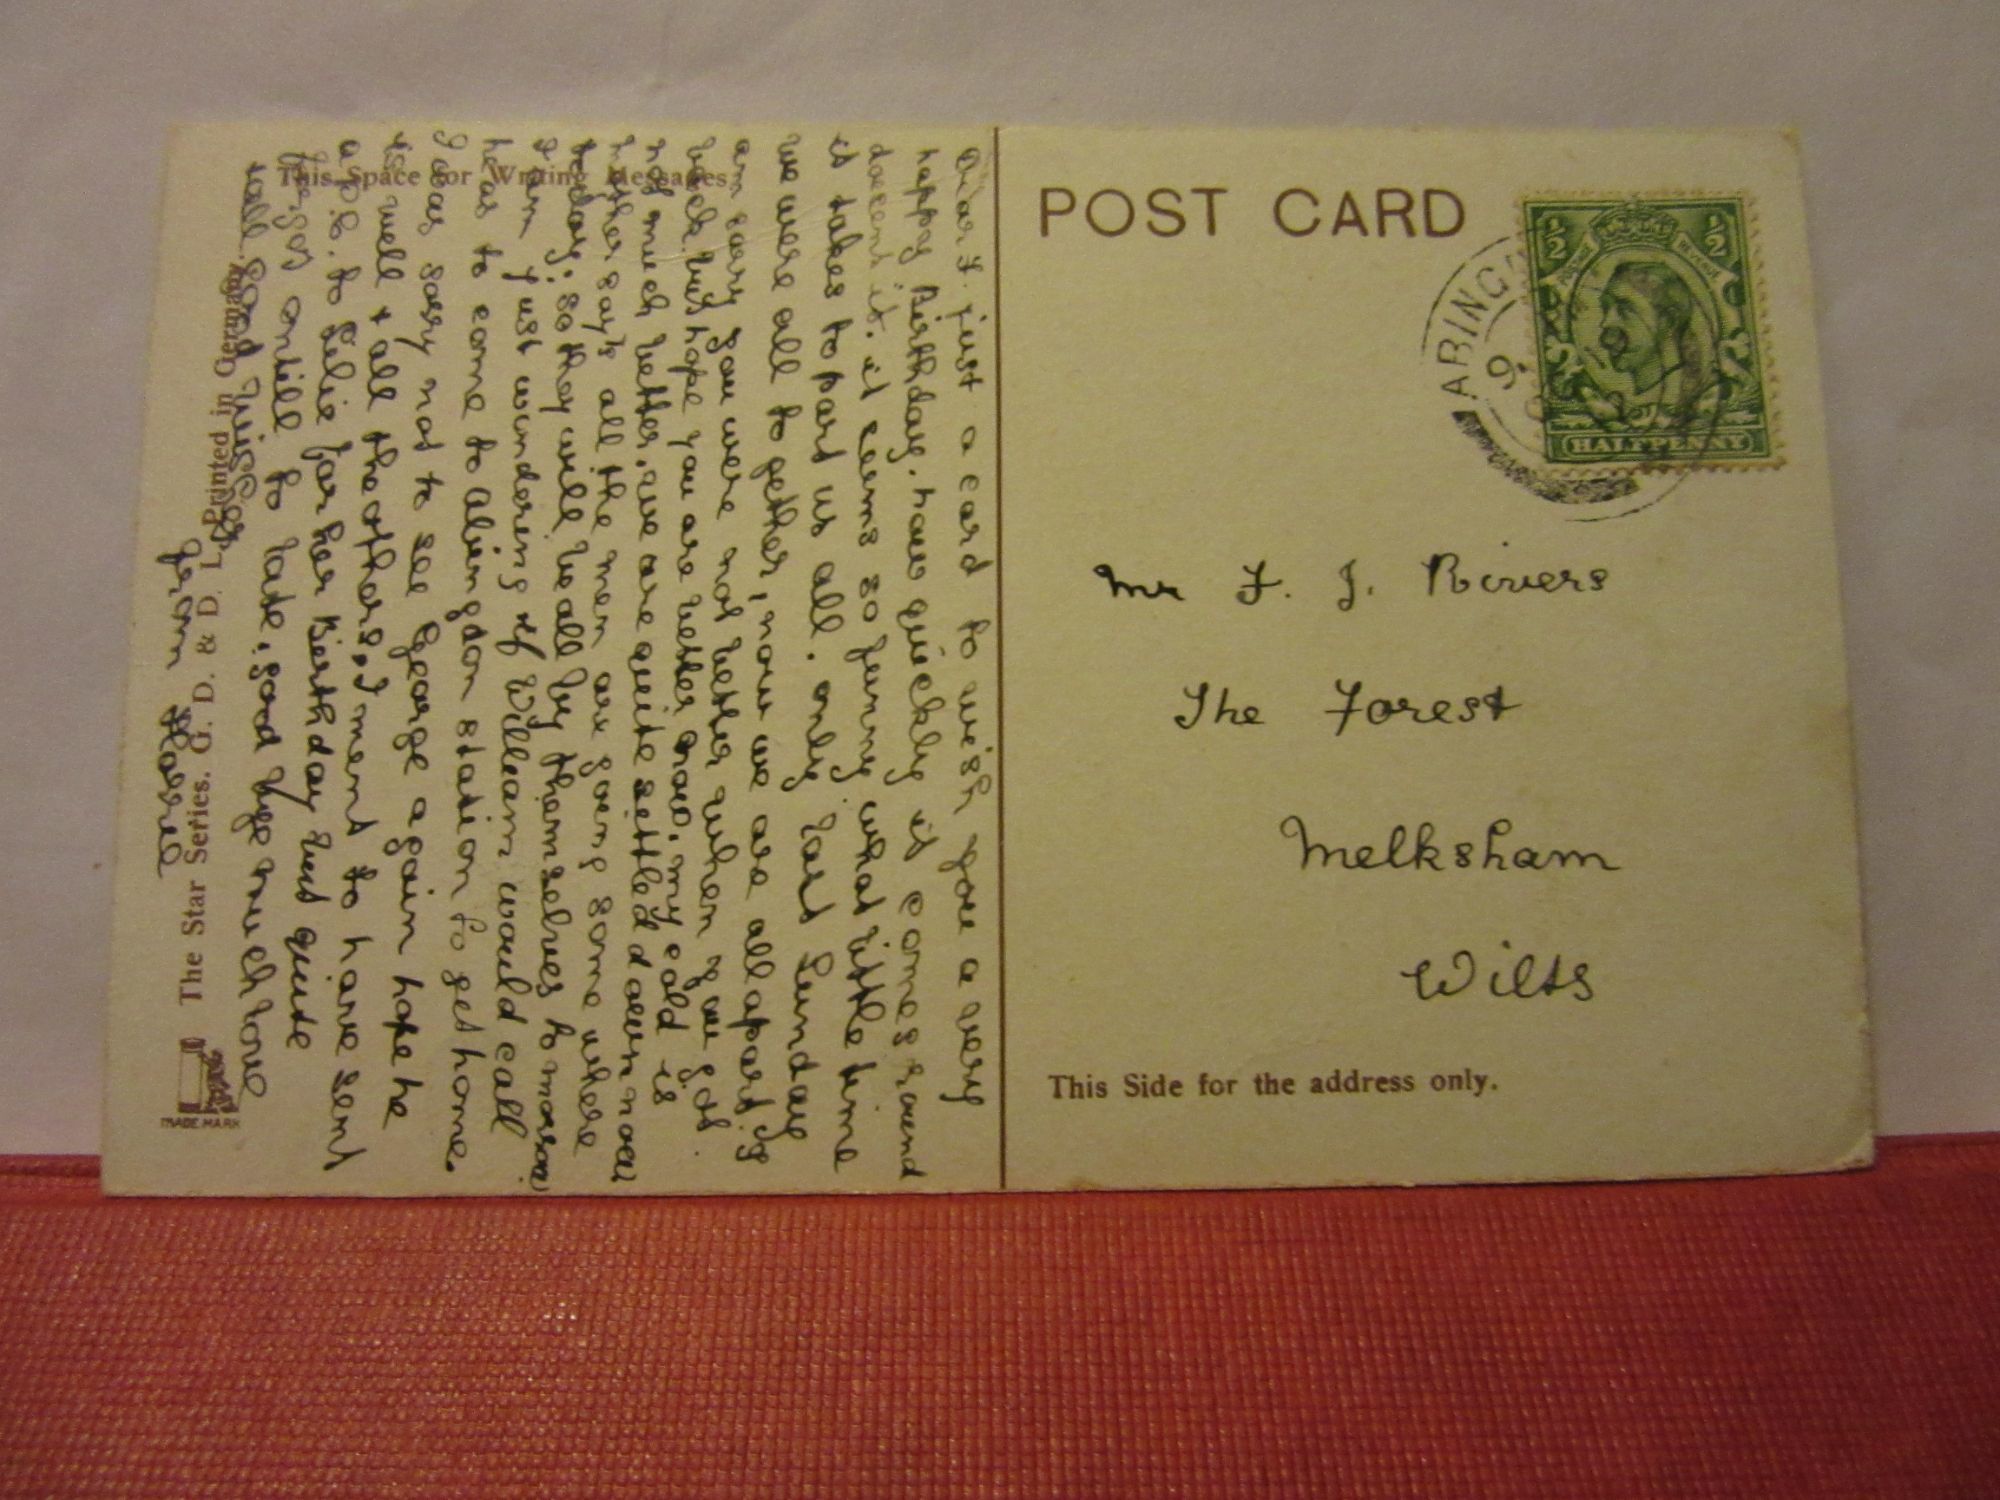 POST CARD
This Space for Writing Messages.
ABING
9
½ ½
POSTAGE REVENUE
HALFPENNY
Mr F. J. Rivers
The Forest
Melksham
Wilts
This Side for the address only.
Dear F. just a card to wish you a very
happy Birthday, how quickly it comes round
doesent it. it seems so funny what little time
it takes to part us all. only last Sunday
we were all to gether, now we are all apart. I
am sory you were not better when you got
back but hope you are better now, my cold is
not much better, we are quite settled down now
Mother say's all the men are going some where
to day. so they will be all by themselves to morrow
I am just wondering if William would call
he as to come to Abingdon station to get home.
I was sorry not to see George again hope he
is well & all the others, I ment to have sent
a P.C. to Elsie for her Birthday but quite
for,got untill to late. good bye much love
well God
from
The Star Series. G. D. & D. L. Printed in Germany.
TRADE MARK